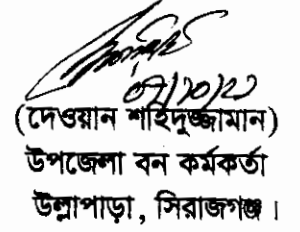 (দেওয়ান শাহিদুজ্জামান)
উপজেলা বন কর্মকর্তা
উল্লাপাড়া, সিরাজগঞ্জ।